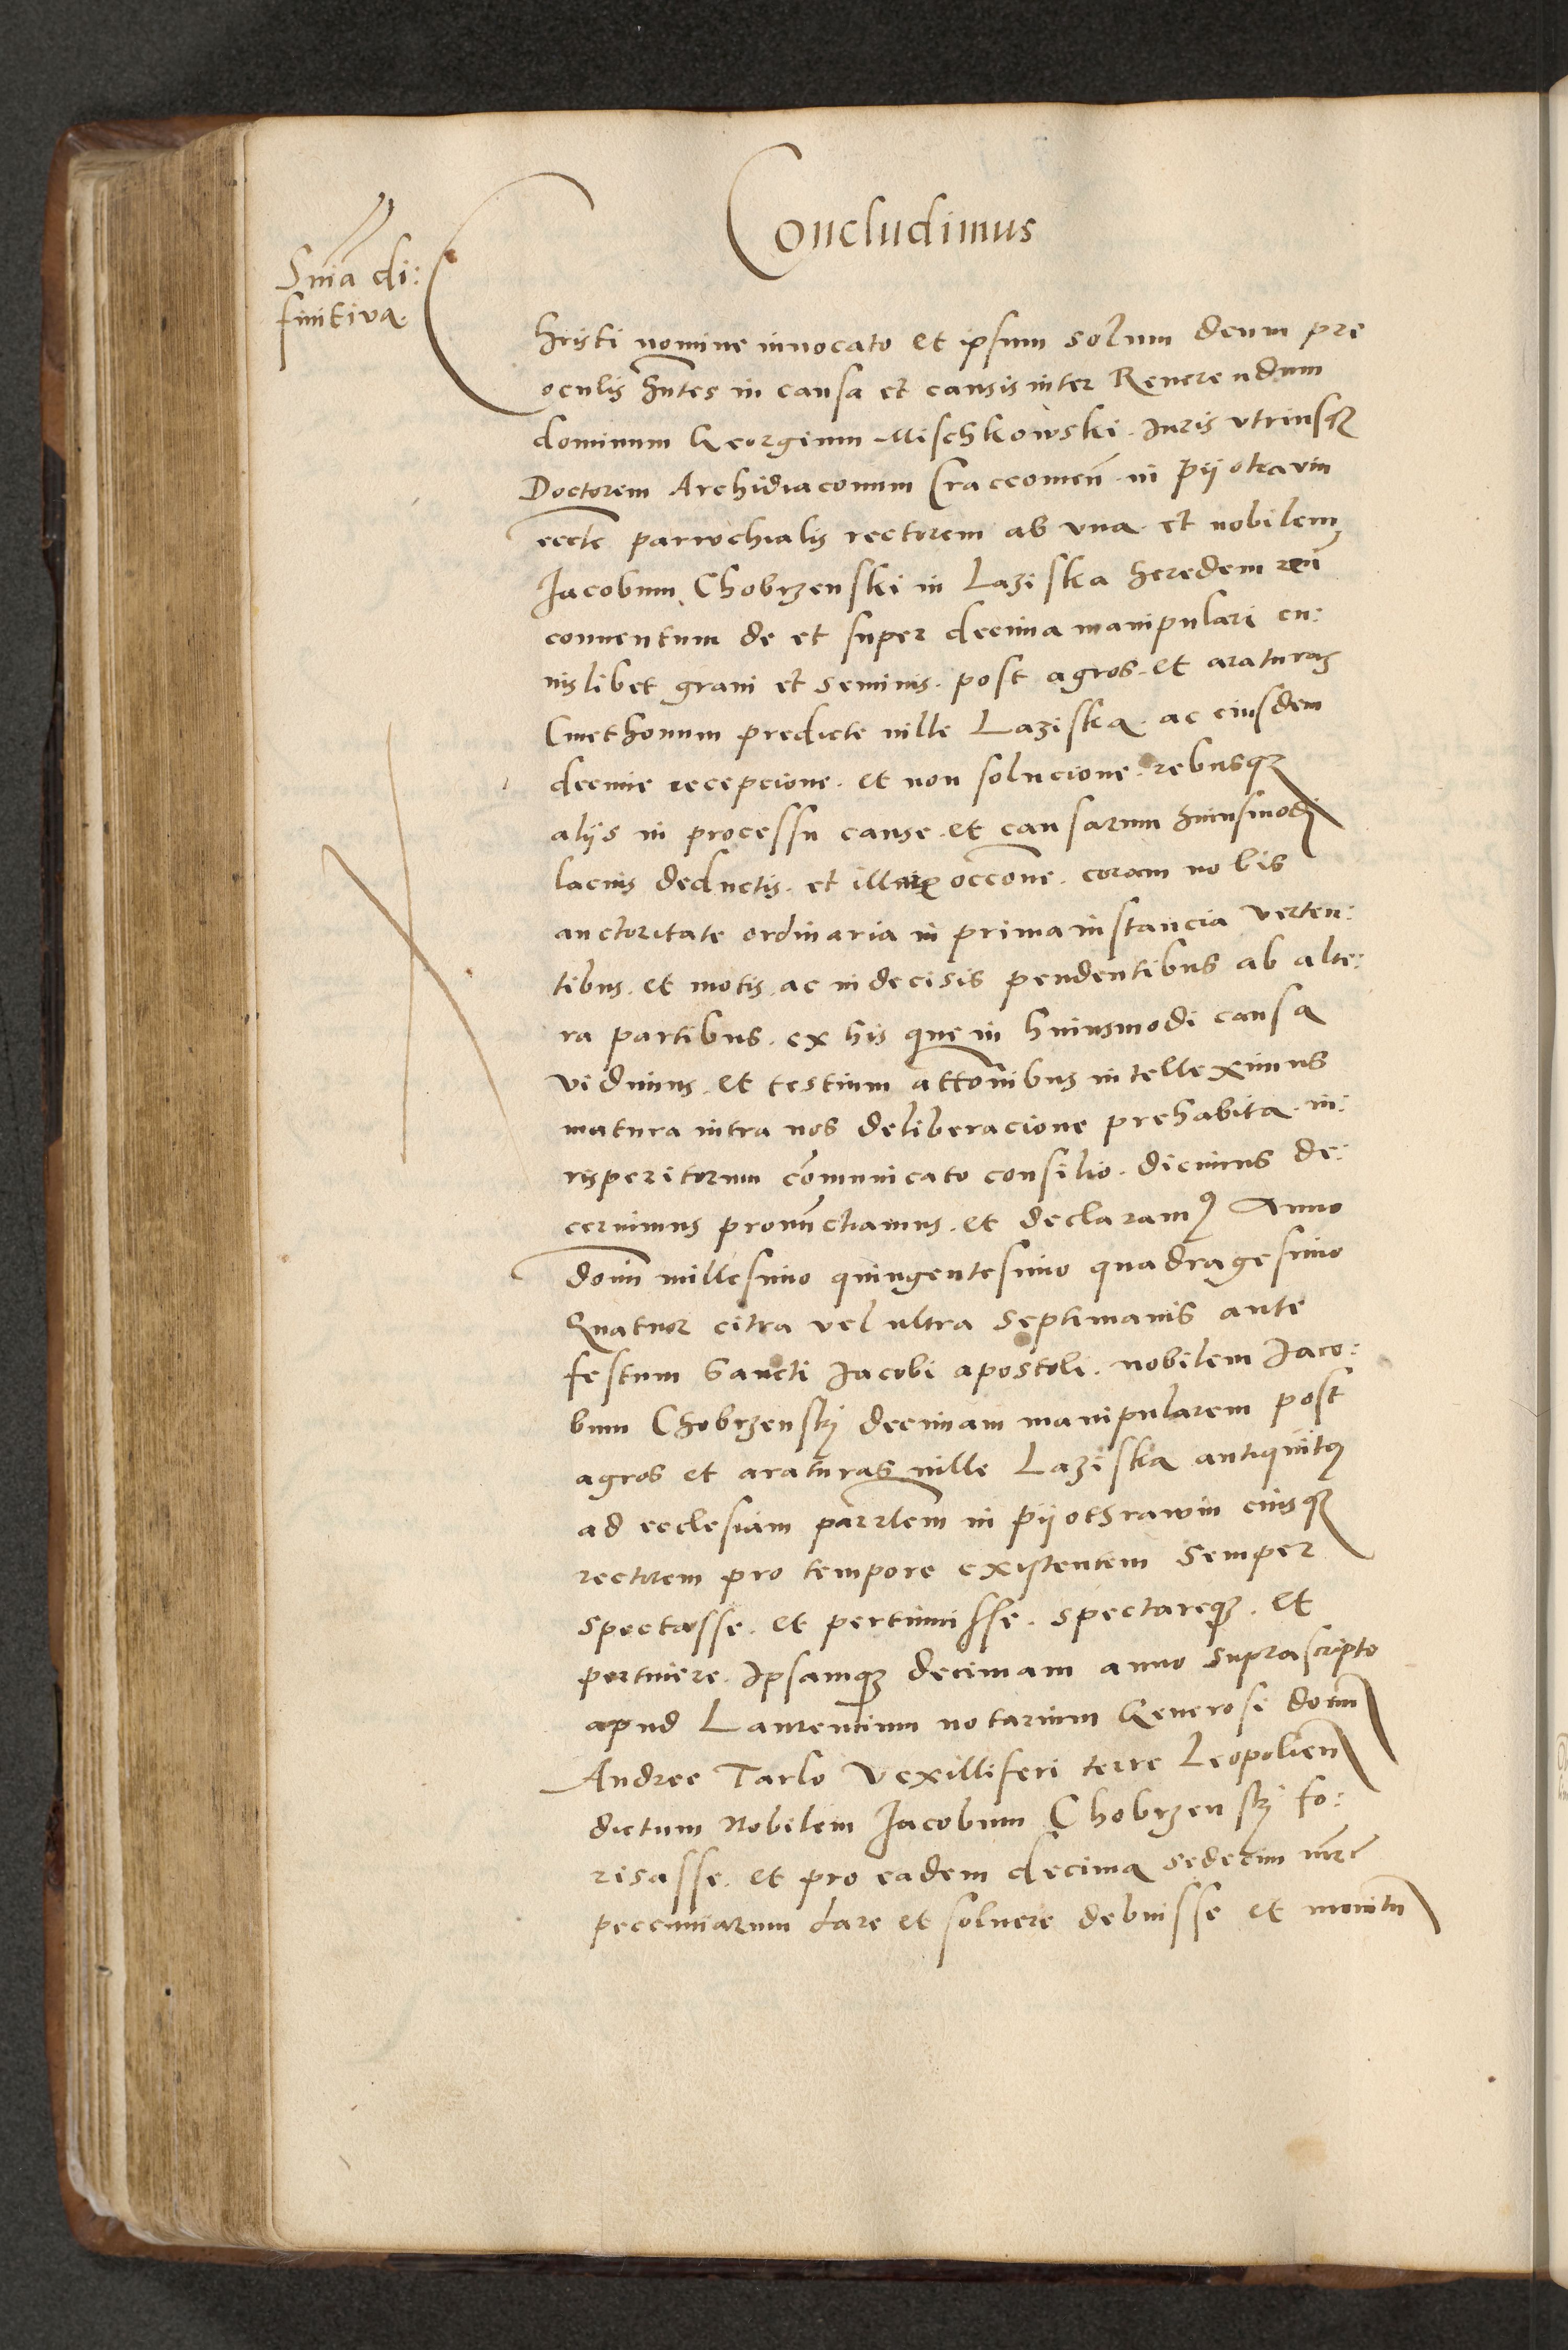 Concludimus
Snia di:
finitiva.
Christi nomine invocato et ipsum solum deum pre
oculis hntes in causa et causis inter Reverendum
dominum Georgium Mischkowski. Iuris vtriusq
Doctorem Archidiaconum Craccouien in Pyotravin
eccle parrochialis rectorem ab vna. et nobilem
Jacobum Chobrzenski in Laziska heredem reu
conuentum de et super decima manipulari cu:
iuslibet grani et seminis. post agros. et araturas
Cmethonum predicte ville Laziska. ac eiusdem
decime recepcione. et non solucione. rebusq
alijs in processu cause. et causarum huiusmodi
lacius deductis. et illarum occone. coram nobis
auctoritate ordinaria in prima instancia verten:
tibus. et motis. ac indecisis pendentibus ab alte:
ra partibus. ex his que in huiusmodi causa
vidimus. et testium attonibus intelleximus
matura intra nos deliberacione prehabita. iu:
risperitorum comunicato consilio. dicimus de:
cernimus pronunctiamus. et declaramus Anno
domi millesimo quingentesimo quadragesimo
Quatuor citra vel ultra septimanis ante
festum Sancti Jacobi apostoli. nobilem Jaco:
bum Chobrzenskij decimam manipularem post
agros et araturas ville Laziska antiquitus
ad ecclesiam parrlem in Pyothrawin eiusq
rectorem pro tempore existentem semper
spectasse. et pertinuisse. spectareq. et
pertinere. Ipsamq decimam anno suprascripto
apud Laurentium notarium Generosi domi
Andree Tarlo Vexilliferi terre Leopolien
dictum Nobilem Jacobum Chobrzenskij fo:
risasse. et pro eadem decima sedecim mrc
pecuniarum dare et soluere debuisse et monitu